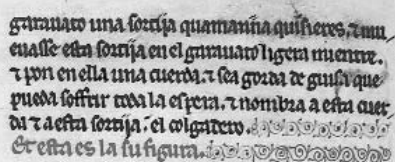 garauato una sortija quamanna quisieres. ⁊ mu
euasse esta sortija en el garauato ligera miente.
⁊ pon en ella una cuerda. ⁊ sea gorda de guisa que
pueda soffrir toda la espera. ⁊ nombra a esta cuer
da ⁊ a esta sortija. el colgadero.
Et esta es la su figura.